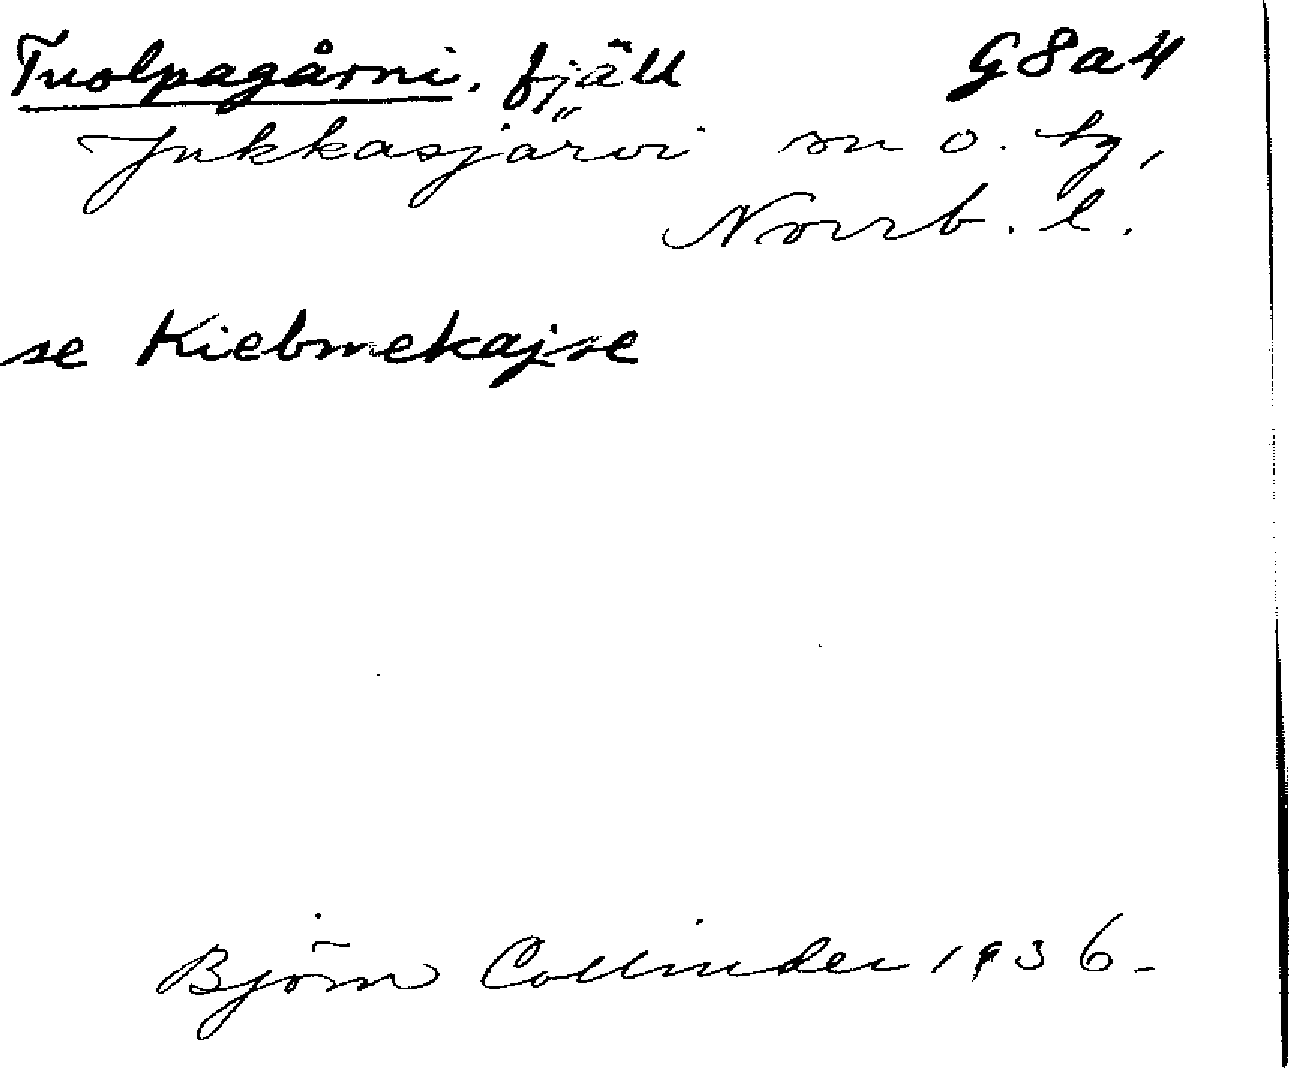 Tuolpagårni, fjäll G8a4
Jukkasjärvi sn o. tg,
Norrb. l.
se Kiebmekajse
Björn Collinder 1936-